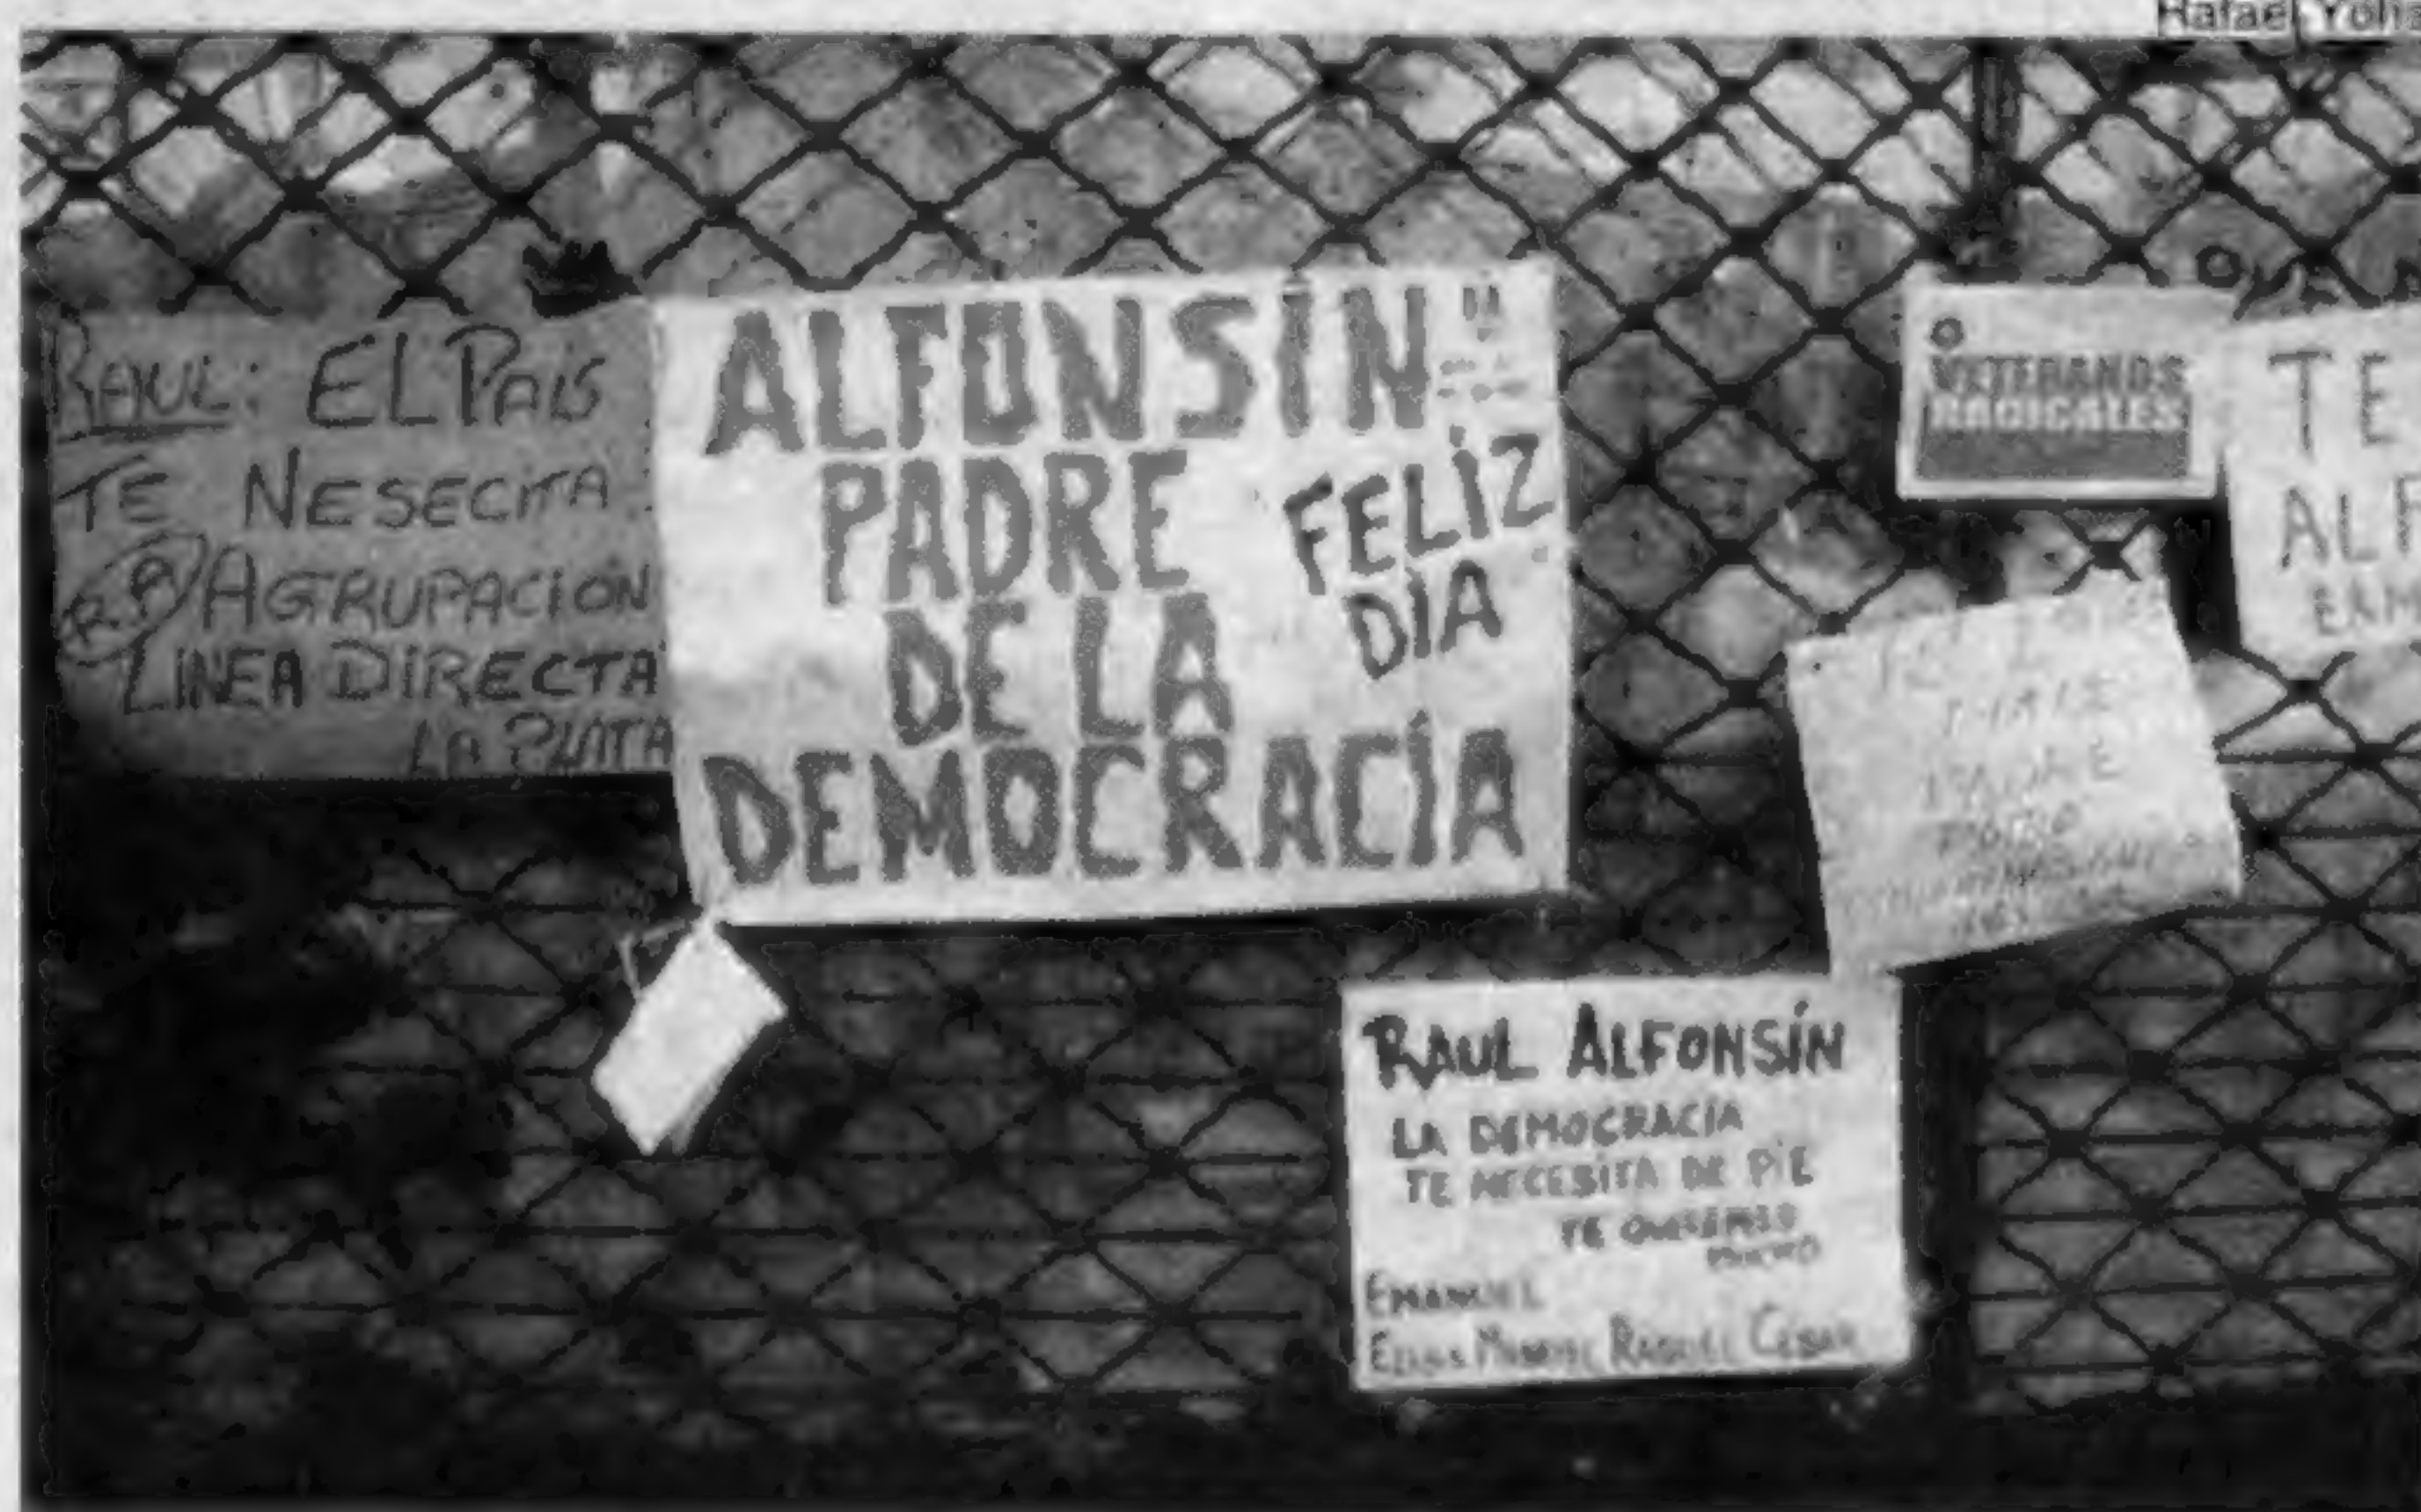 Rafael
RAUL: EL PAIS
TE NESECITA
AGRUPACION
LINEA DIRECTA
LA PLATA
ALFONSÍN
PADRE
DE LA
DEMOCRACÍA
FELÍZ
DÍA
VETERANOS
RADICALES
TE
ALF
PADRE
RAUL ALFONSÍN
LA DEMOCRACÍA
TE NECESITA DE PIE
TE QUEREMOS
MUCHO
EMANUEL
RAQUEL CÉSAR